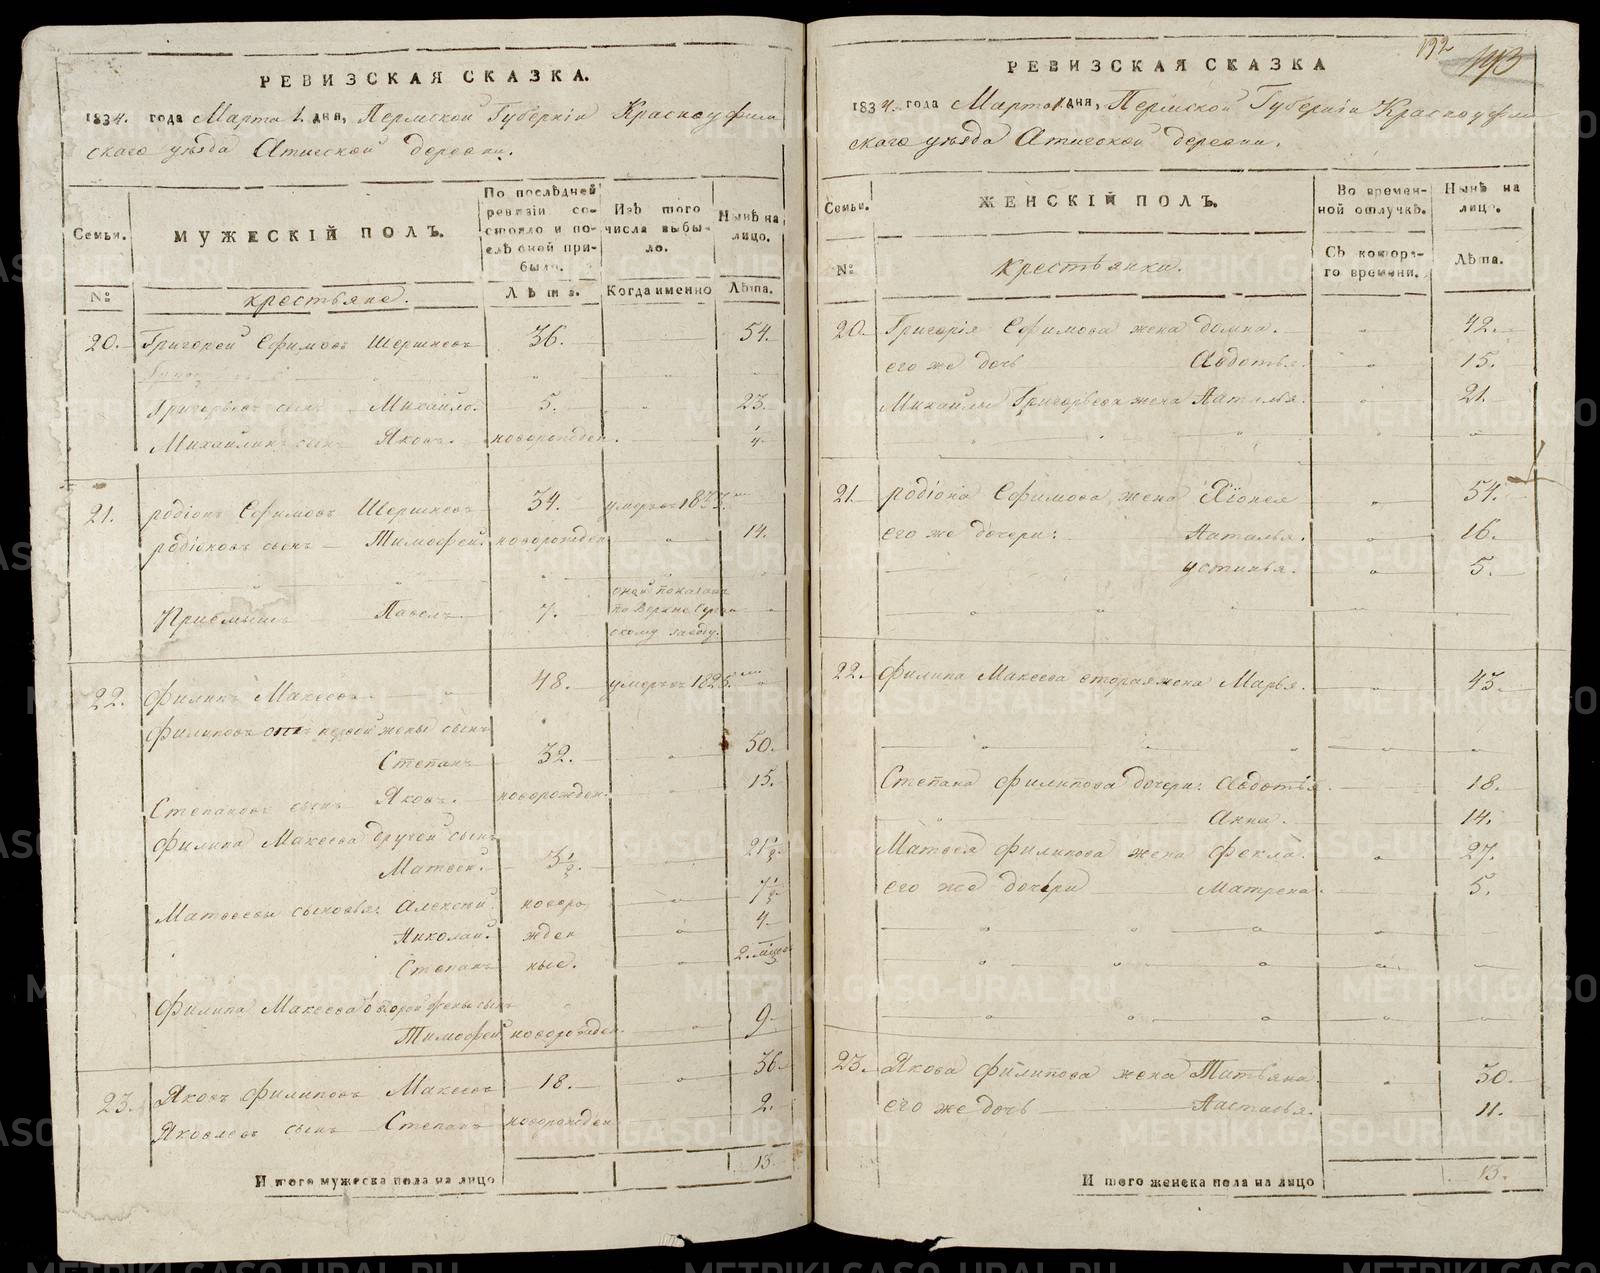 РЕВИЗСКАЯ СКАЗКА.
1834. года Марта 1. дня, Пермской Губерніи Красноуфим
скаго уѣзда Атигской деревни.
Семьи.
МУЖЕСКІЙ ПОЛЪ.
По послѣдней ревизіи состояло и послѣ оной прибыло.
Изъ того числа выбыло.
Нынѣ на лицо.
№
крестьяне.
Лѣта.
Когда именно
Лѣта.
20. Григорей Ефимовъ Шершневъ 36. 54.
Григорьевъ сынъ Михайло. 5. 23.
Михайлинъ сынъ Яковъ. новорожден. 4.
21. родіонъ Ефимовъ Шершневъ 34. умеръ въ
родіоновъ сынъ Тимофей. новорожден 14.
Приемышъ Павелъ 7. оной показанъ
по Верхне Серги
скому заводу.
22. Филипъ Макеевъ 48. умеръ въ 1825.
Филиповъ отъ первой жены сынъ
Степанъ 32. 50.
Степановъ сынъ Яковъ. новорожден. 15.
Филипа Макеева другой сынъ
Матвей. 3½. 21½.
Матвеевы сыновья: Алексей новоро 7½
Николай. жден 4.
Степанъ ные. 2.
Филипа Макеева второй жены сынъ
Тимофей новорожден. 9.
23. Яковъ Филиповъ Макеевъ 18. 36.
Яковлевъ сынъ Степанъ новорожден 2.
И того мужеска пола на лицо 13.
192 193
РЕВИЗСКАЯ СКАЗКА
1834. года Марта 1. дня, Пермской Губерніи Красноуфим
скаго уѣзда Атигской деревни.
Семьи.
ЖЕНСКІЙ ПОЛЪ.
Во временной отлучкѣ.
Нынѣ на лицо.
№
крестьянки.
Съ котораго времени.
Лѣта.
20. Григорія Ефимова жена домна. 42.
его же дочь Авдотья. 15.
Михайлы Григорьева жена Наталья. 21.
21. родіона Ефимова жена Хіонея 54.
его же дочери: Наталья. 16.
устинья. 5.
22. Филипа Макеева вторая жена Марья. 43.
Степана Филипова дочери: Авдотья 18.
Анна. 14.
Матвея Филипова жена Фекла. 27.
его же дочери Матрена. 5.
23. Якова Филипова жена Татьяна 30.
его же дочь Наталья. 11.
И того женска пола на лицо 13.
METRIKI.GASO-URAL.RU